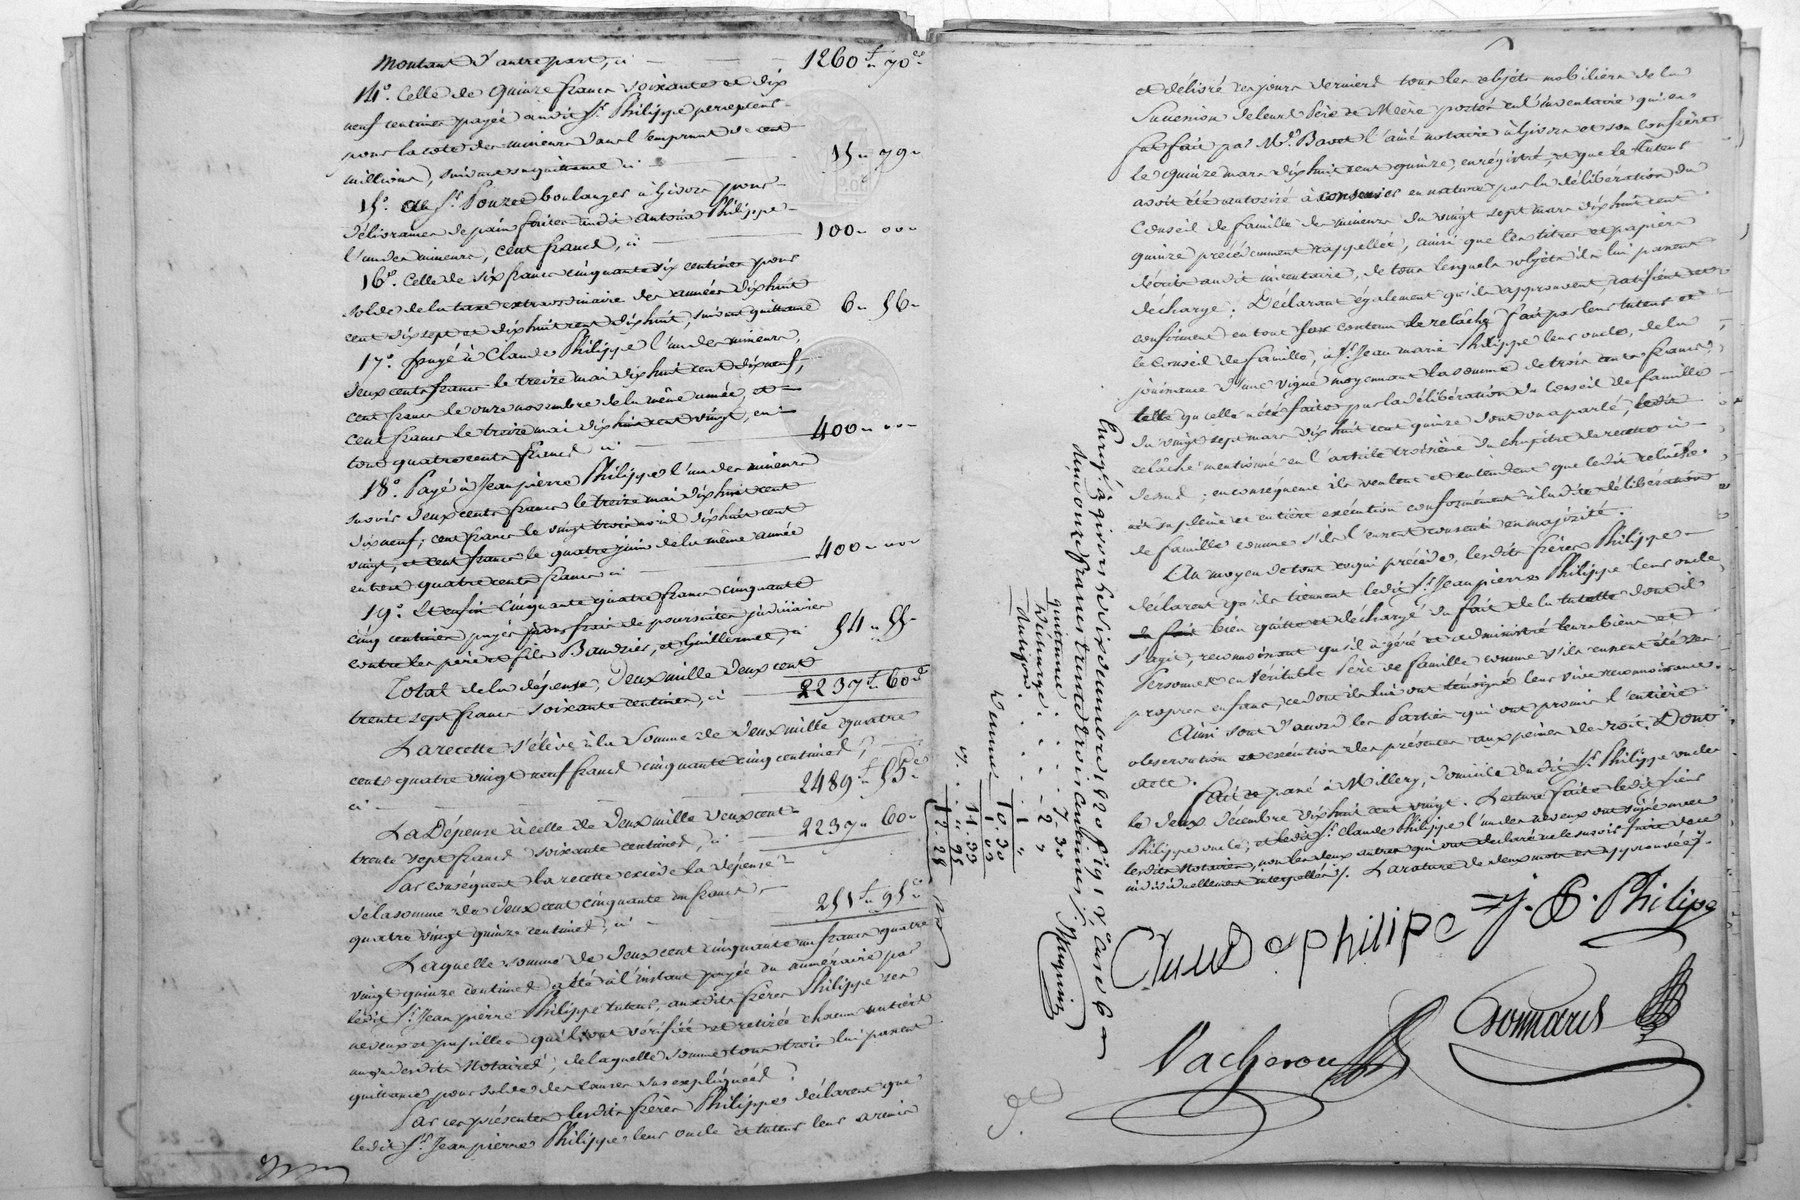 Montant d'autre part, ci — 1260 f 70 c
14º. Celle de quinze francs soixante et dix
neuf centimes payée audit Sr. Philippe percepteur
pour la cote des mineurs dans l'emprunt de cent
millions, suivant sa quittance ci — 15 " 79 "
15º. Au Sr. Pouzet boulanger à Givors pour
délivrances de pain faites audit Antoine Philippe
l'un des mineurs, cent francs, ci — 100 " 00 "
16º. Celle de six francs cinquante six centimes pour
solde de la taxe extraordinaire des années dix huit
cent dix sept et dix huit cent dix huit, suivant quittance 6 " 56 "
17º. payé à Claude Philippe l'un des mineurs,
deux cents francs le treize mai dix huit cent dix neuf,
cent francs le onze novembre de la même année, et
cent francs le treize mai dix huit cent vingt, en
tout quatre cents francs ci — 400 " 00 "
18º. Payé à Jean pierre Philippe l'un des mineurs
savoir deux cents francs le treize mai dix huit cent
dix neuf ; cent francs le vingt trois avril dix huit cent
vingt, et cent francs le quatre juin de la même année
en tout quatre cents francs ci — 400 " 00 "
19º. Et enfin Cinquante quatre francs cinquante
cinq centimes payés pour frais de poursuites judiciaires
contre les père et fils et Guillermet, ci 54 " 55 "
Total de la dépense, deux mille deux cent
trente sept francs soixante centimes, ci — 2237 f 60 c
La recette s'élève à la somme de deux mille quatre
cents quatre vingt neuf francs cinquante cinq centimes,
ci — 2489 f 55 c
La Dépense à celle de deux mille deux cent
trente sept francs soixante centimes, ci — 2237 " 60 "
Par conséquent la recette excède la dépense
de la somme de deux cent cinquante un francs
quatre vingt quinze centimes, ci — 251 f 95 c
Laquelle somme de deux cent cinquante un francs quatre
vingt quinze centimes a été à l'instant payée en numéraire par
ledit Sr. Jean pierre Philippe tuteur, auxdits frères Philippe ses
neveux et pupilles qui l'ont vérifiée et retirée chacun un tiers
au vu desdits Notaires, de laquelle somme tous trois lui passent
quittance pour solde des causes sus expliquées.
Par ces présentes lesdits frères Philippe déclarent que
ledit Sr. Jean pierre Philippe leur oncle et tuteur leur a remis
et délivré ces jours derniers tous les objets mobiliers de la
Succession de leurs Père et Mère portés en l'inventaire qui en
fut fait par Me. Bavet l'ainé notaire à Givors et son confrère
le quinze mars dix huit cent quinze, enrégistré, et que le tuteur
avoit été autorisé à conserver en nature par la délibération du
Conseil de famille des mineurs du vingt sept mars dix huit cent
quinze précédemment rappellée, ainsi que les titres et papiers
décrits audit inventaire, de tous lesquels objets ils lui passent
décharge ; Déclarant également qu'ils approuvent, ratifient et
confirment en tout son contenu le relâche fait par leur tuteur et
le Conseil de famille, à Sr. Jean marie Philippe leur oncle, de la
jouissance d'une vigne moyennant la somme de trois cents francs,
telle qu'elle a été faite par la délibération du Conseil de famille
du vingt sept mars dix huit cent quinze dont on a parlé, ledit
relâche mentionné en l'article troisième du chapitre de recette ci
dessus ; en conséquence ils veulent et entendent que ledit relâche
ait sa pleine et entière exécution conformément à ladite délibération
de famille comme s'ils l'eussent consenti en majorité.
Au moyen de tout ce qui précède, lesdits frères Philippe
déclarent qu'ils tiennent ledit Sr. Jean pierre Philippe leur oncle
bien quitte et déchargé du fait de la tutelle dont il
s'agit, reconnoissant qu'il a géré et administré leurs biens et
Personnes en véritable Père de famille comme s'ils eussent été ses
propres enfans, ce dont ils lui ont témoigné leur vive reconnoissance.
Ainsi sont d'accord les Parties qui ont promis l'entière
observation et exécution des présentes aux peines de droit, Dont
acte.
Fait et passé à Millery, domicile dudit Sr. Philippe oncle
le deux décembre dix huit cent vingt. Lecture faite ledit sieur
Philippe oncle, et ledit Sr. Claude Philippe l'un des neveux ont signé avec
lesdits Notaires, non les deux autres qui ont déclaré ne le savoir faire de ce
individuellement interpellés ./. La rature de deux mots est approuvée ./.
Claude philipe = J. P. Philipe
Vacheron
Enregé. à givors le dix décembre 1820 fº 191 Vº case 6
reçu onze francs trente trois centimes ./.
quittance . . . 7. 30
Décharge . . . 2 "
1 "
10. 30
Décime 1. 03
11. 33
" 95
12. 28